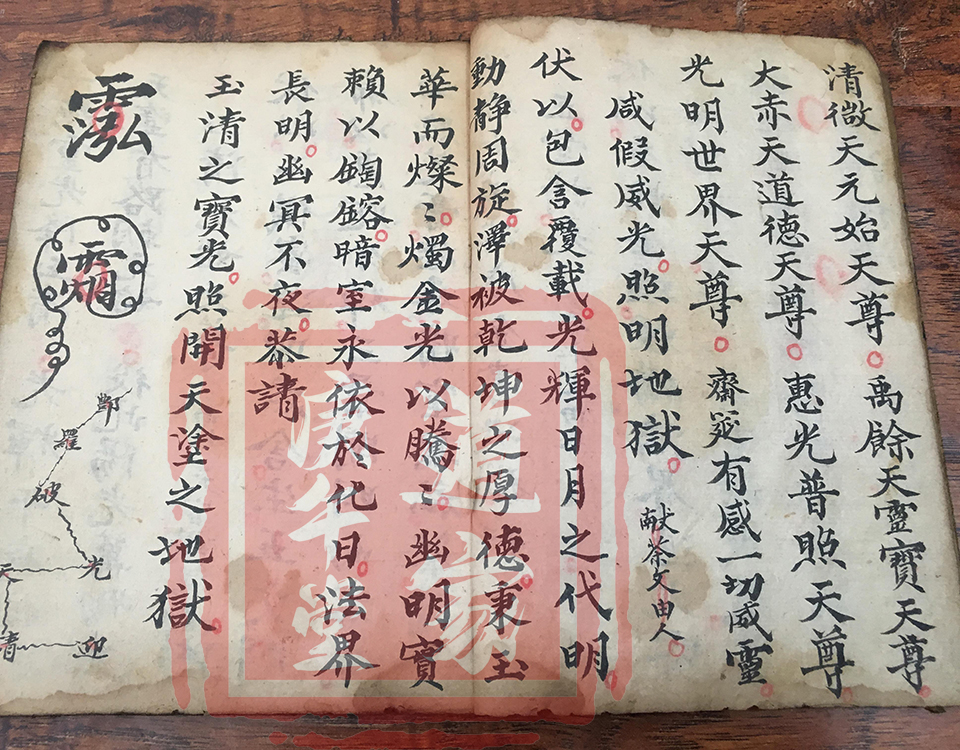 清微天元始天尊。禹餘天靈寶天尊。
大赤天道德天尊。惠光普照天尊
光明世界天尊。齋筵有感一切威靈。
咸假威光。照明地獄。
献茶文由人。
伏以。包含覆載。光輝日月之代明。
動靜周旋。澤被乾坤之厚德。秉玉
華而燦〻。燭金光以騰〻。幽明實
賴以鎔。暗室永依於化日。法界
長明。幽冥不夜。恭請
玉清之寶光。照開天塗之地獄。
酆
羅
破
光
天
迎
青
道家
庚午堂